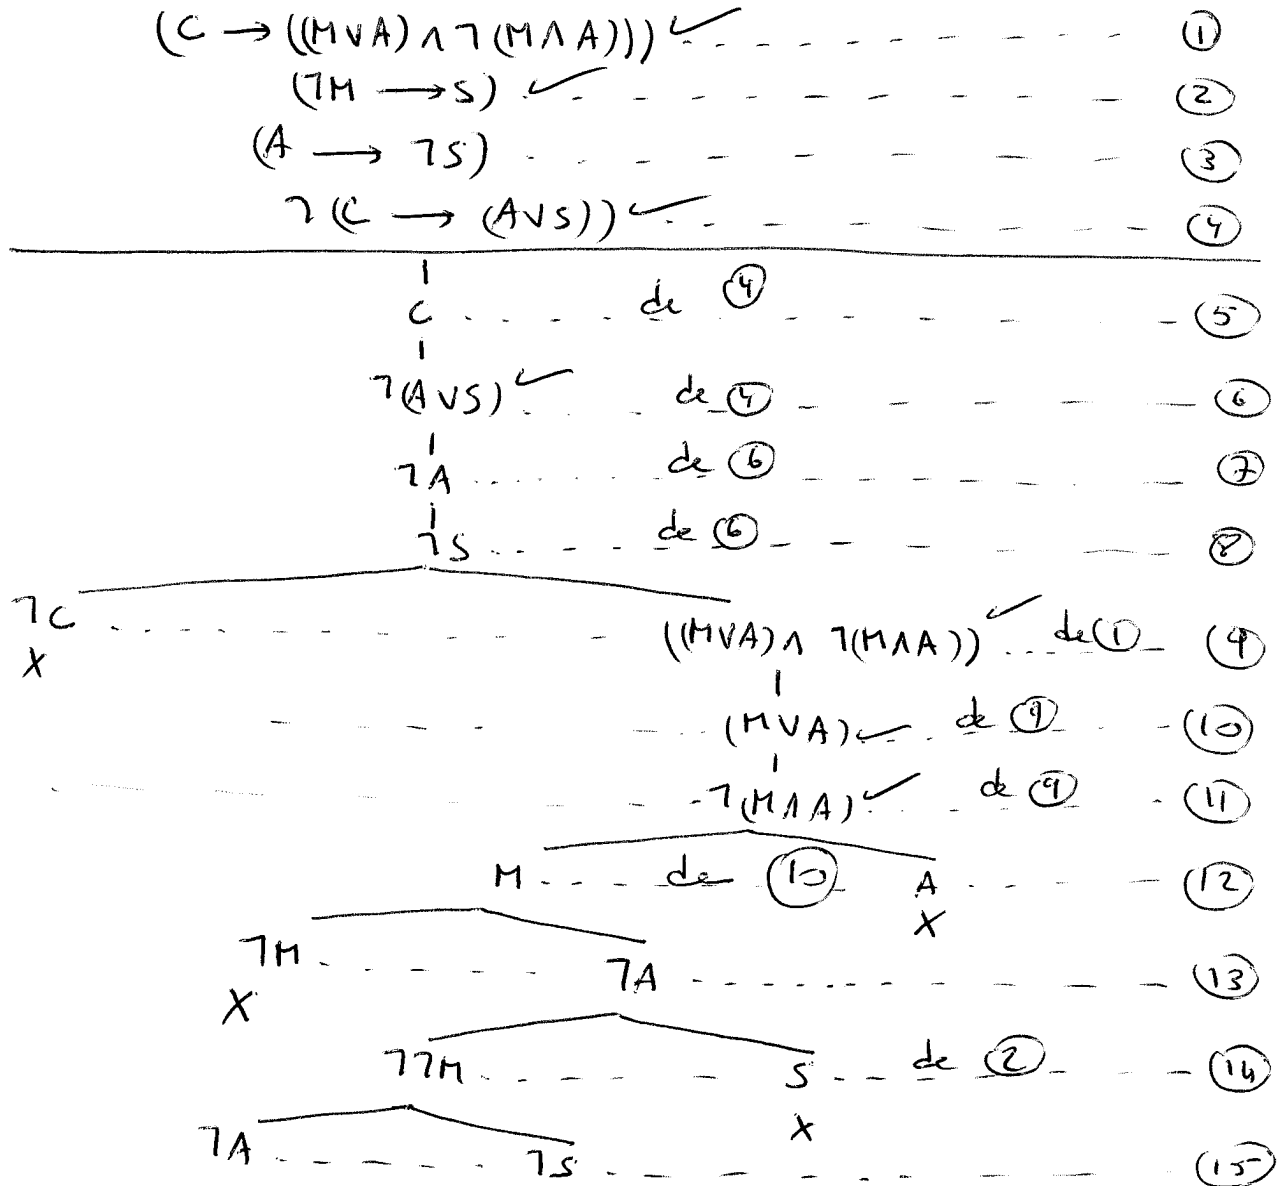 (C → ((M∨A) ∧ ¬(M∧A))) ✓ ①
(¬M → S) ✓ ②
(A → ¬S) ③
¬(C → (A∨S)) ✓ ④
C de ④ ⑤
¬(A∨S) ✓ de ④ ⑥
¬A de ⑥ ⑦
¬S de ⑥ ⑧
¬C ((M∨A) ∧ ¬(M∧A)) ✓ de ① ⑨
X
(M∨A) ✓ de ⑨ ⑩
¬(M∧A) ✓ de ⑨ ⑪
M de ⑩ A ⑫
X
¬M ¬A ⑬
X
¬¬M S de ② ⑭
X
¬A ¬S ⑮